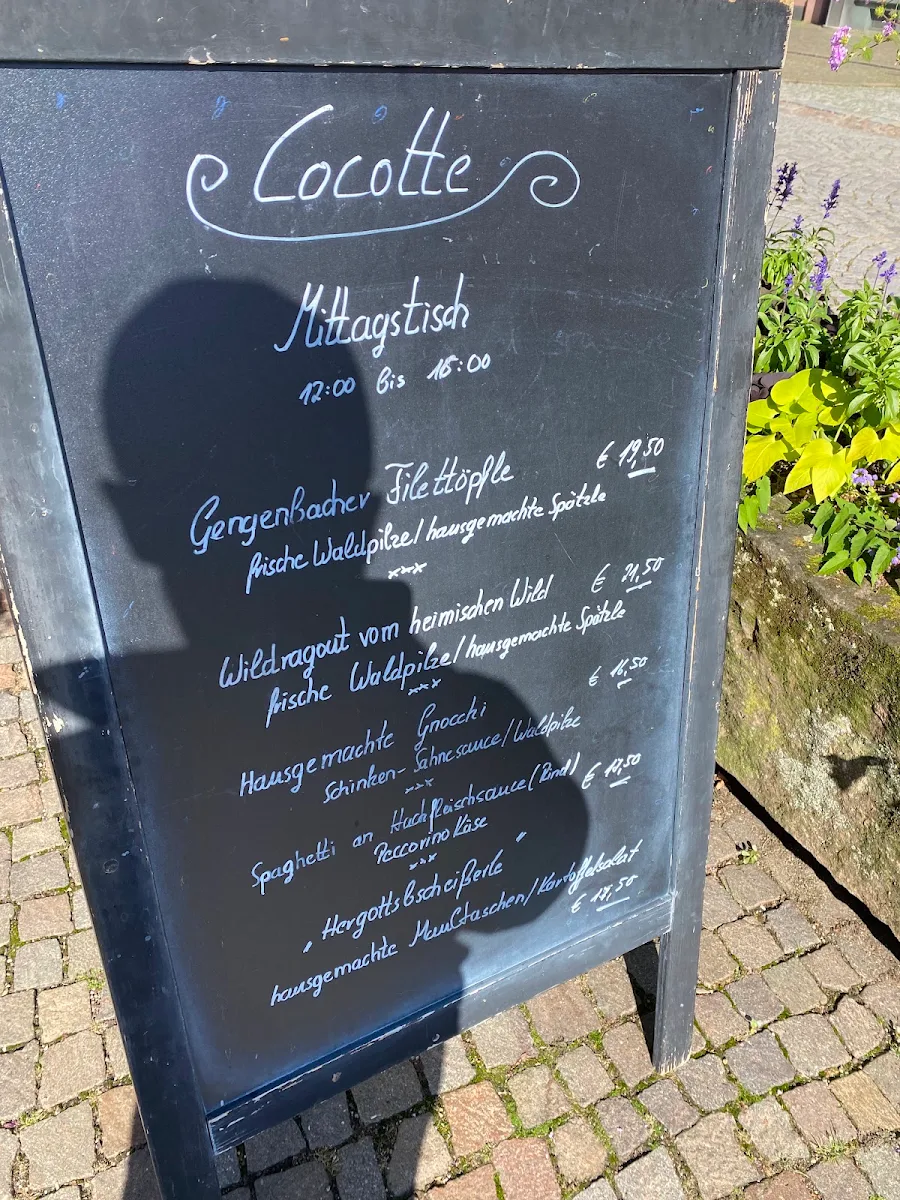 Cocotte
Mittagstisch
12:00 bis 15:00
Gengenbacher Filettöpfle € 19,50
frische Waldpilze/hausgemachte Spätzle
xxx
Wildragout vom heimischen Wild € 21,50
frische Waldpilze/hausgemachte Spätzle
xxx
Hausgemachte Gnocchi € 16,50
Schinken-Sahnesauce/Waldpilze
xxx
Spaghetti an Hackfleischsauce (Rind) € 17,50
Peccorino Käse
xxx
„Hergottsbscheißerle"
hausgemachte Maultaschen/Kartoffelsalat
€ 17,50